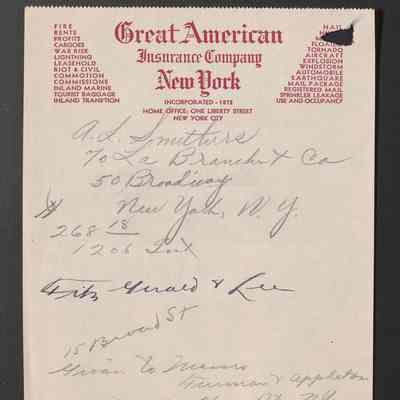 FIRE
RENTS
PROFITS
CARGOES
WAR RISK
LIGHTNING
LEASEHOLD
RIOT & CIVIL
COMMOTION
COMMISSIONS
INLAND MARINE
TOURIST BAGGAGE
INLAND TRANS'T'ION
Great American
Insurance Company
New York
INCORPORATED - 1872
HOME OFFICE: ONE LIBERTY STREET
NEW YORK CITY
HAIL
TORNADO
AIRCRAFT
EXPLOSION
WINDSTORM
AUTOMOBILE
EARTHQUAKE
MAIL PACKAGE
REGISTERED MAIL
SPRINKLER LEAKAGE
USE AND OCCUPANCY
A. L. Smithers
% La Branche & Co
50 Broadway
New York, N. Y.
268 18
1206
Fitz Gerald & Lee
15 Broad St
Given to
Furman & Appleton
NY